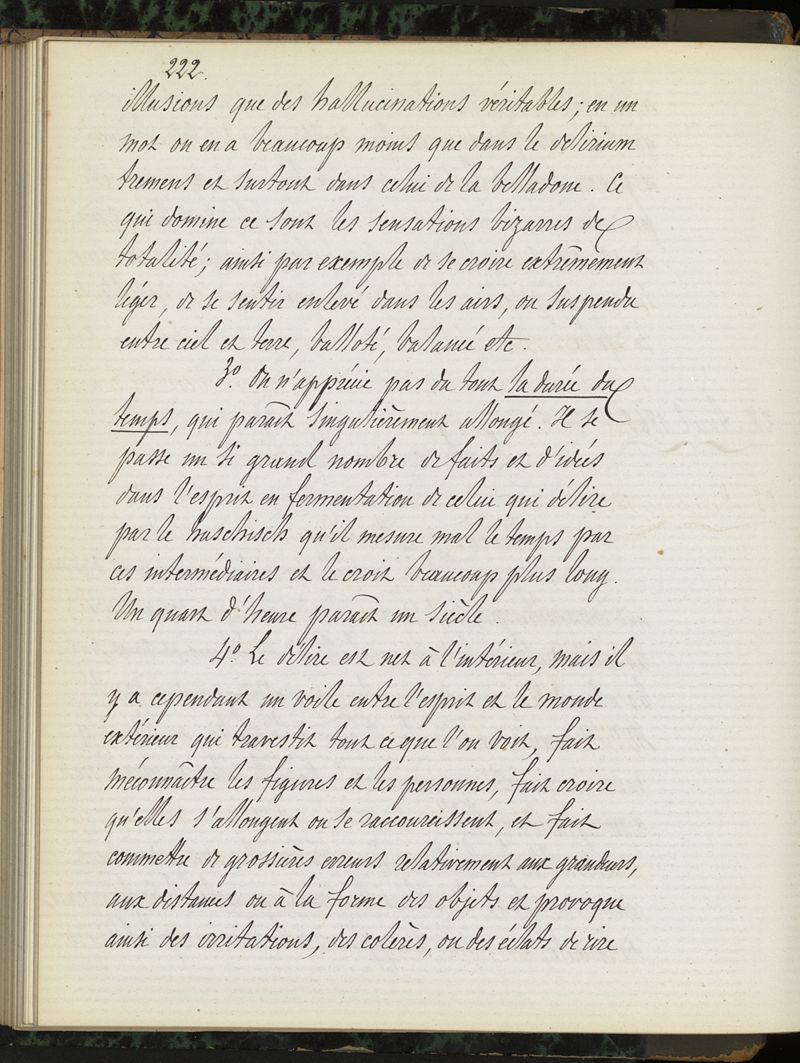 222.
illusions que des hallucinations véritables; en un
mot on en a beaucoup moins que dans le delirium
tremens et surtout dans celui de la belladone. Ce
qui domine ce sont les sensations bizarres de
totalité; ainsi par exemple de se croire extrêmement
léger, de se sentir enlevé dans les airs, ou suspendu
entre ciel et terre, balloté, balancé etc.
3º. On n'apprécie pas du tout la durée du
temps, qui paraît singulièrement allongé. Il se
passe un si grand nombre de faits et d'idées
dans l'esprit en fermentation de celui qui délire
par le haschisch qu'il mesure mal le temps par
ces intermédiaires et le croit beaucoup plus long.
Un quart d'heure paraît un siècle.
4º. Le délire est net à l'intérieur, mais il
y a cependant un voile entre l'esprit et le monde
extérieur qui travestit tout ce que l'on voit, fait
méconnaître les figures et les personnes, fait croire
qu'elles s'allongent ou se raccourcissent, et fait
commettre de grossières erreurs relativement aux grandeurs,
aux distances ou à la forme des objets et provoque
ainsi des irritations, des colères, ou des éclats de rire